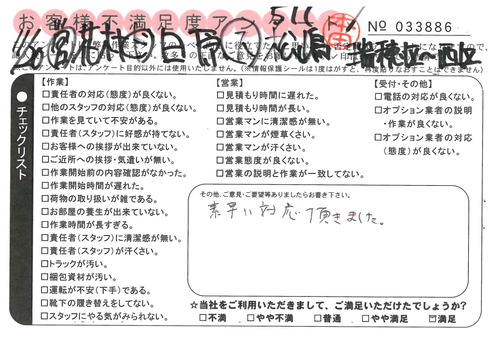 お客様不満足度アンケート
№ 033886
5L6
11/30
瑞穂区〜西区
(※情報保護シールは1度はがすと、再度貼りなおすことはできません)
チェックリスト
【作業】
□責任者の対応(態度)が良くない。
□他のスタッフの対応(態度)が良くない。
□作業を見ていて不安がある。
□責任者(スタッフ)に好感が持てない。
□お客様への挨拶が出来ていない。
□ご近所への挨拶・気遣いが無い。
□作業開始前の内容確認がなかった。
□作業開始時間が遅れた。
□荷物の取り扱いが雑である。
□お部屋の養生が出来ていない。
□作業時間が長すぎる。
□責任者(スタッフ)に清潔感が無い。
□責任者(スタッフ)が汗くさい。
□トラックが汚い。
□梱包資材が汚い。
□運転が不安(下手)である。
□靴下の履き替えをしてない。
□スタッフにやる気がみられない。
【営業】
□見積もり時間に遅れた。
□見積もり時間が長い。
□営業マンに清潔感が無い。
□営業マンが煙草くさい。
□営業マンが汗くさい。
□営業態度が良くない。
□営業の説明と作業が一致してない。
【受付・その他】
□電話の対応が良くない。
□オプション業者の説明
・作業が良くない。
□オプション業者の対応
(態度)が良くない。
その他、ご意見・ご要望等ありましたらお書き下さい。
素早い対応頂きました。
☆当社をご利用いただきまして、ご満足いただけたでしょうか?
□不満 □やや不満 □普通 □やや満足 ☑満足